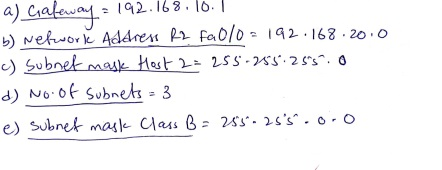 a) Gateway = 192.168.10.1
b) Network Address R2 Fa0/0 = 192.168.20.0
c) Subnet mask Host 2 = 255.255.255.0
d) No. of Subnets = 3
e) Subnet mask Class B = 255.255.0.0